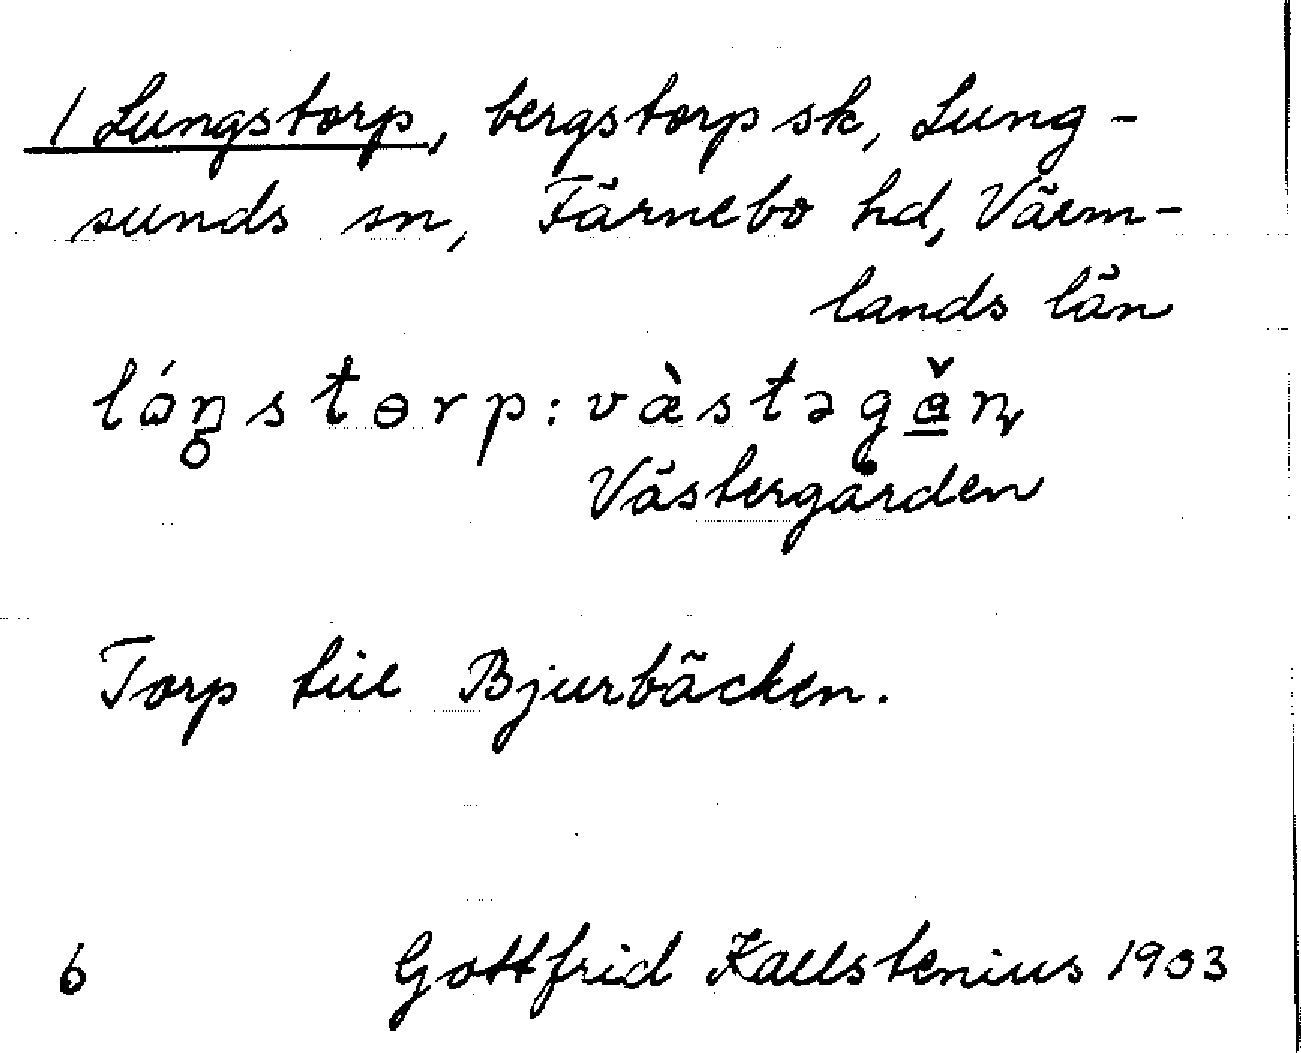 1 Lungstorp, bergstorp sk, Lung-
sunds sn, Färnebo hd, Värm-
lands län
lóŋ̥stɵrp: vàstəgǎ̱ɳ
Västergården
Torp till Bjurbäcken.
6 Gottfrid Kallstenius 1903